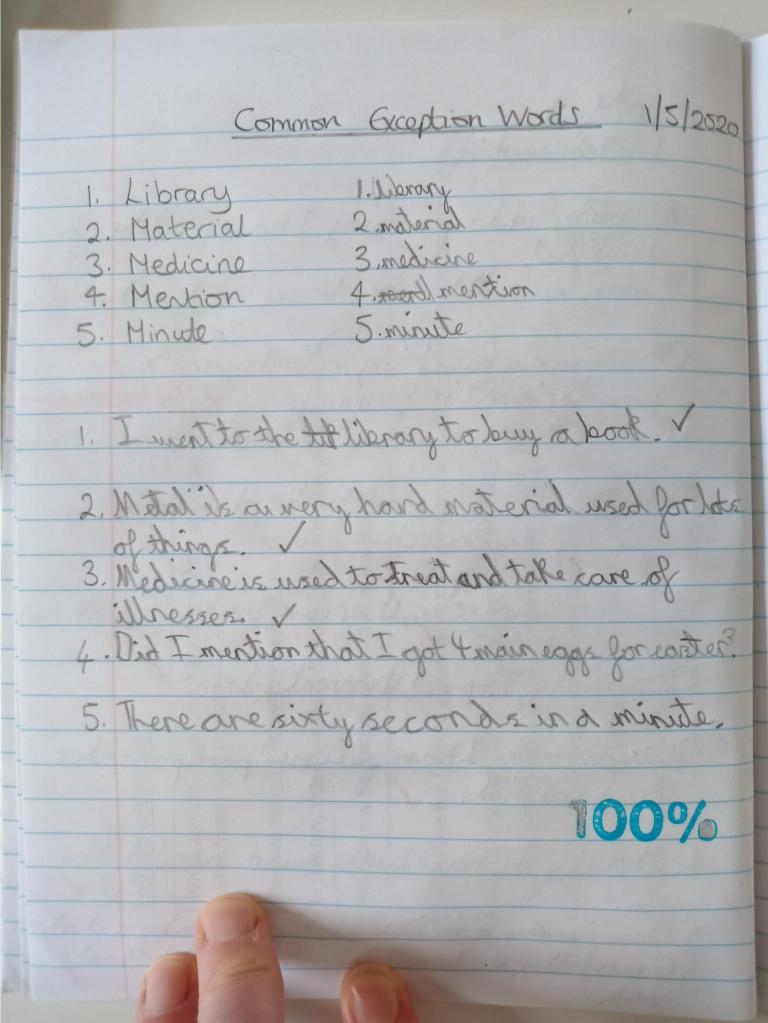 Common Exception Words 1/5/2020
1. Library 1. library
2. Material 2. material
3. Medicine 3. medicine
4. Mention 4. mention
5. Minute 5. minute
1. I went to the library to buy a book. ✓
2. Metal is a very hard material used for lots
of things. ✓
3. Medicine is used to treat and take care of
illnesses. ✓
4. Did I mention that I got 4 main eggs for easter?
5. There are sixty seconds in a minute.
100%